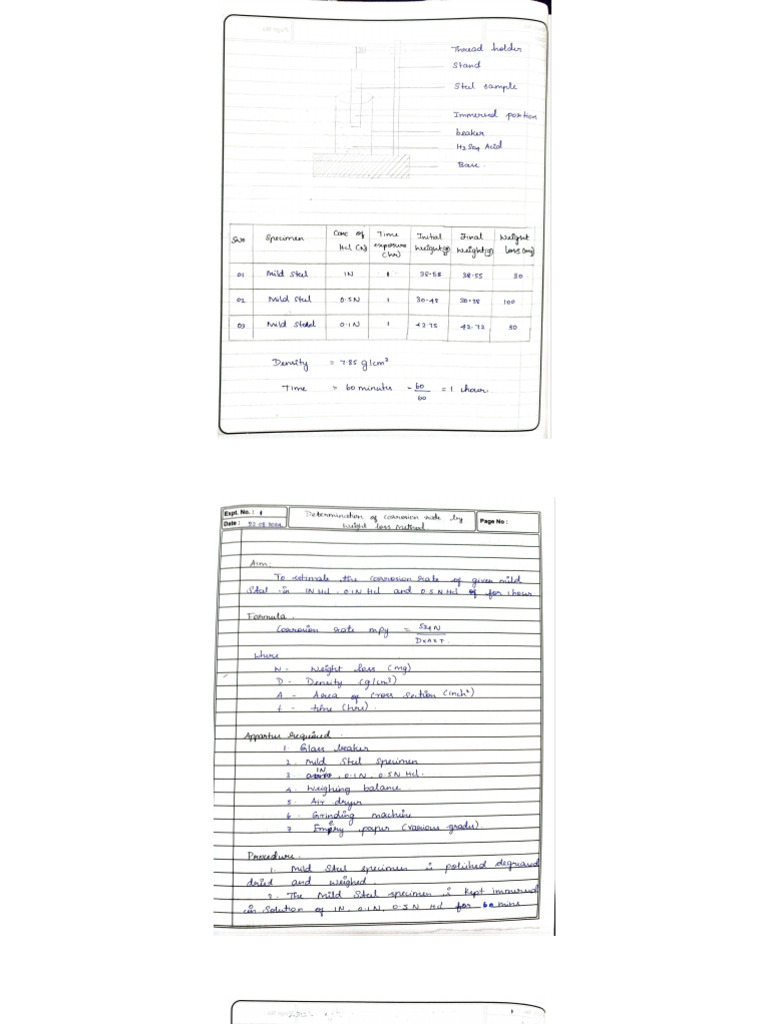 Thread holder
Stand
Steel sample
Immersed portion
beaker
H2SO4 Acid
Base.
Sr.no Specimen Conc of HCl (N) Time exposure (hr) Initial weight(g) Final weight(g) Weight loss (mg)
01 Mild Steel 1N 1 38.58 38.55 30
02 Mild Steel 0.5N 1 30.48 30.38 100
03 Mild Steel 0.1N 1 42.75 42.72 30
Density = 7.85 g/cm³
Time = 60 minutes - 60/60 = 1 hour
Expt. No. : 1
Date :
Determination of corrosion rate by
Weight loss method.
Page No :
Aim:
To estimate the corrosion rate of given mild
Steel in 1N Hcl, 0.1N Hcl and 0.5 N Hcl of for 1 hour
Formula.
Corrosion rate mpy = 534W/DxAxT.
where
W - Weight loss (mg)
D - Density (g/cm³)
A - Area of cross section (inch²)
t - time (hrs).
Appartus required.
1. Glass beaker
2. Mild Steel Specimen
3. 1N, 0.1N, 0.5N Hcl.
4. Weighing balance
5. Air dryer
6. Grinding machine
7 Emery paper (various grades).
Procedure.
1. Mild Steel specimen is polished degreased
dried and weighed.
2. The Mild Steel specimen is kept immersed
in solution of 1N, 0.1N, 0.5N Hcl for 60 mins